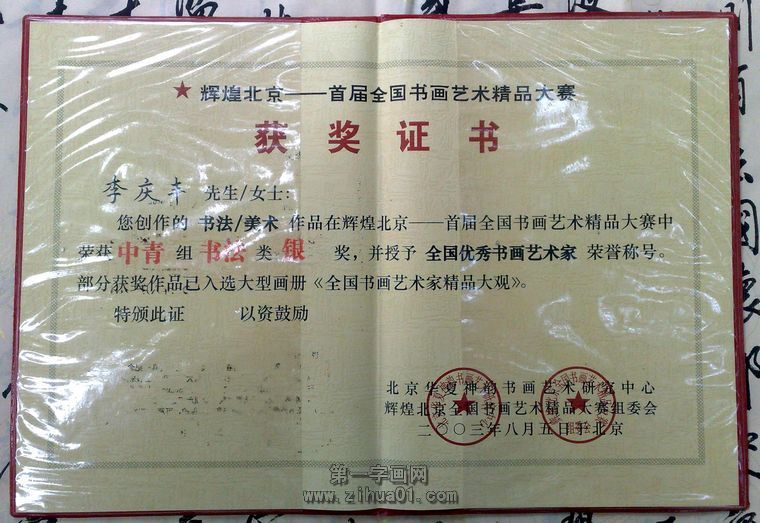 ★ 辉煌北京——首届全国书画艺术精品大赛
获奖证书
李庆丰 先生/女士:
您创作的 书法/美术 作品在辉煌北京——首届全国书画艺术精品大赛中
荣获 中青 组 书法 类 银 奖，并授予 全国优秀书画艺术家 荣誉称号。
部分获奖作品已入选大型画册《全国书画艺术家精品大观》。
特颁此证 以资鼓励
北京华夏神韵书画艺术研究中心
辉煌北京全国书画艺术精品大赛组委会
二〇〇三年八月五日于北京
第一字画网
www.zihua01.com